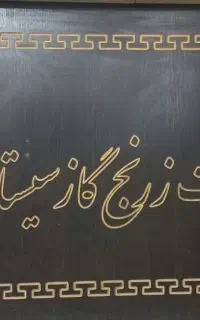 ت زرنج گاز سیستا